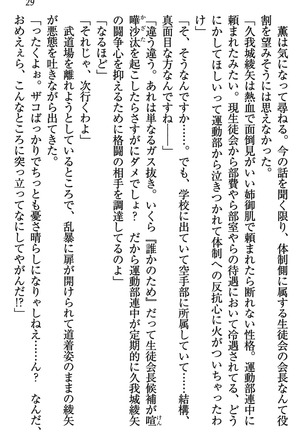 29
薫は気になって尋ねる。今の話を聞く限り、体制側に属する生徒会の役員なんて
割を望みそうには思えなかった。
「久我城綾矢は熱血で面倒見がいい姉御肌で頼まれたら断れない性格。運動部連中に
頼まれたみたい。現生徒会から部費や部室やらの待遇において冷遇されてる、どう
にかしてほしいって運動部から泣きつかれて体制への反抗心に火がついちゃったわ
け」
「そ、そうなんですか……。でも、学校に出ていて空手部に所属していて……結構、
真面目な方なんですね――」
「違う違う。あれは単なるガス抜き。いくら『誰かのため』だって生徒会長候補が喧
嘩沙汰を起こしたらさすがにダメでしょ?　だから運動部連中が定期的に久我城綾矢
の闘争心を抑えるために格闘の相手を調達してるのよ」
「なるほど」
「それじゃ、次行くわよ」
武道場を離れようとしているところで、乱暴に扉が開けられて道着姿のままの綾矢
が悪態を吐きながら出てきた。
「ったくよぉ。ザコばっかりでちっとも憂さ晴らしになりゃしねえ……んん?　なんだ、
おめえら、こんなところに突っ立ってなにしてやがんだ!?」